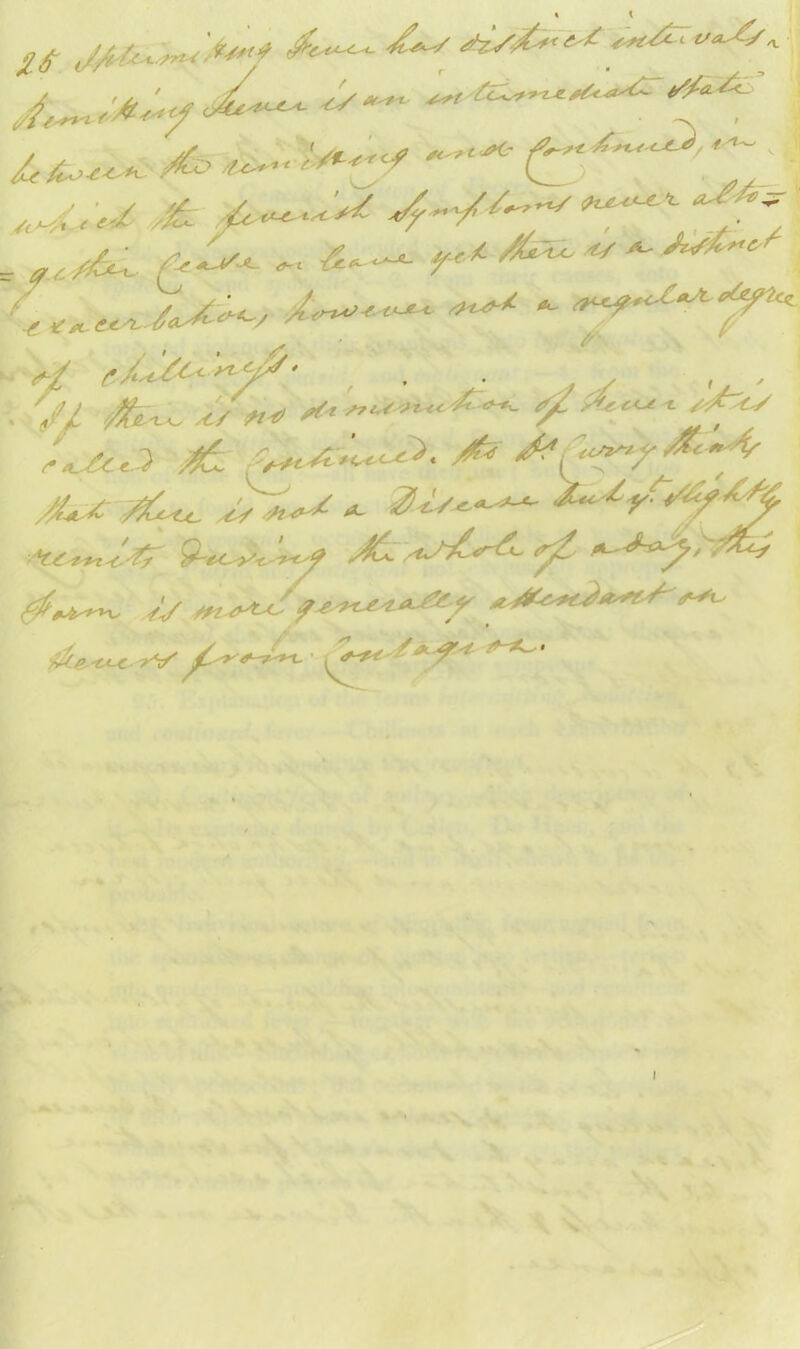 25 Intermitting Fever has distinct intervals,
Remitting Fever is an intermediate State
between the remitting and Continued, in
which the feverish Symptoms never alto=
=gether Cease or leave yet there is a distinct
exacerbation, however not a regular degree
of chilliness.
If there is no diminution of Fever it is
called the Continued. tho Dr Curry thinks
that there is not a Disease but yt. slightly
remits During the whole of a day, this
Form is more generally attendant on
Fevers from Contagion.